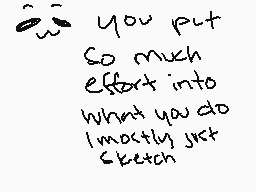 you put
so much
effort into
what you do
I mostly just
sketch